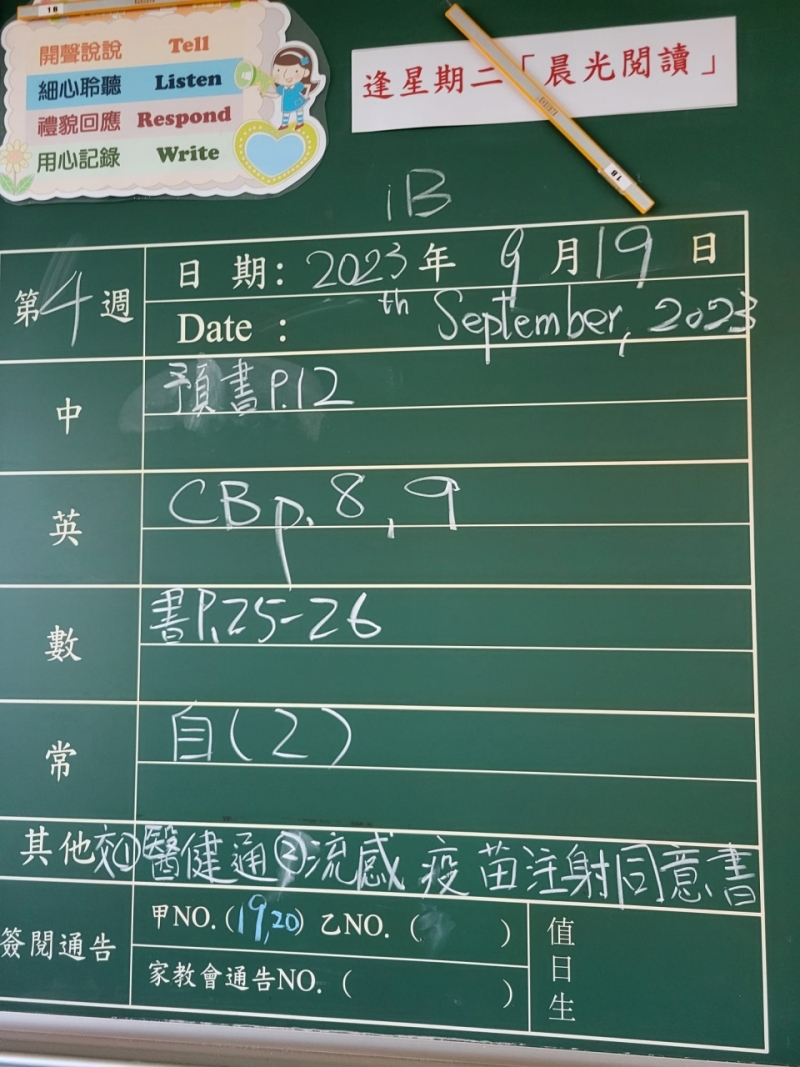 開聲說說 Tell
細心聆聽 Listen
禮貌回應 Respond
用心記錄 Write
逢星期二「晨光閱讀」
1B
第4週
日期: 2023年 9月19日
Date : th September, 2023
中 預書P.12
英 CB p. 8, 9
數 書P.25-26
常 自(2)
其他 交①醫健通②流感疫苗注射同意書
簽閱通告
甲NO.(19,20) 乙NO. ( )
家教會通告NO. ( )
值日生